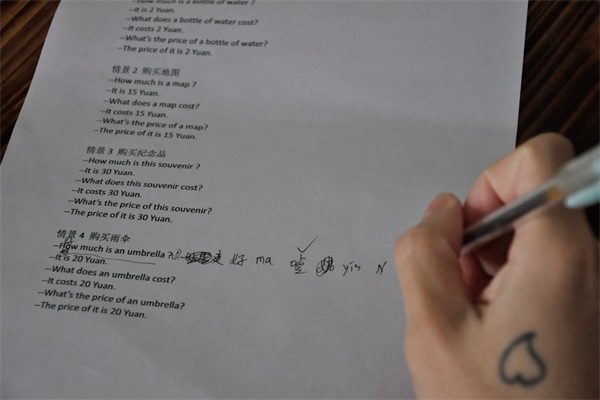 --How much is a bottle of water ?
--It is 2 Yuan.
--What does a bottle of water cost?
--It costs 2 Yuan.
--What's the price of a bottle of water?
--The price of it is 2 Yuan.
情景 2 购买地图
--How much is a map ?
--It is 15 Yuan.
--What does a map cost?
--It costs 15 Yuan.
--What's the price of a map?
--The price of it is 15 Yuan.
情景 3 购买纪念品
--How much is this souvenir ?
--It is 30 Yuan.
--What does this souvenir cost?
--It costs 30 Yuan.
--What's the price of this souvenir?
--The price of it is 30 Yuan.
情景 4 购买雨伞
--How much is an umbrella ? 好 ma yis
--It is 20 Yuan.
--What does an umbrella cost?
--It costs 20 Yuan.
--What's the price of an umbrella?
--The price of it is 20 Yuan.